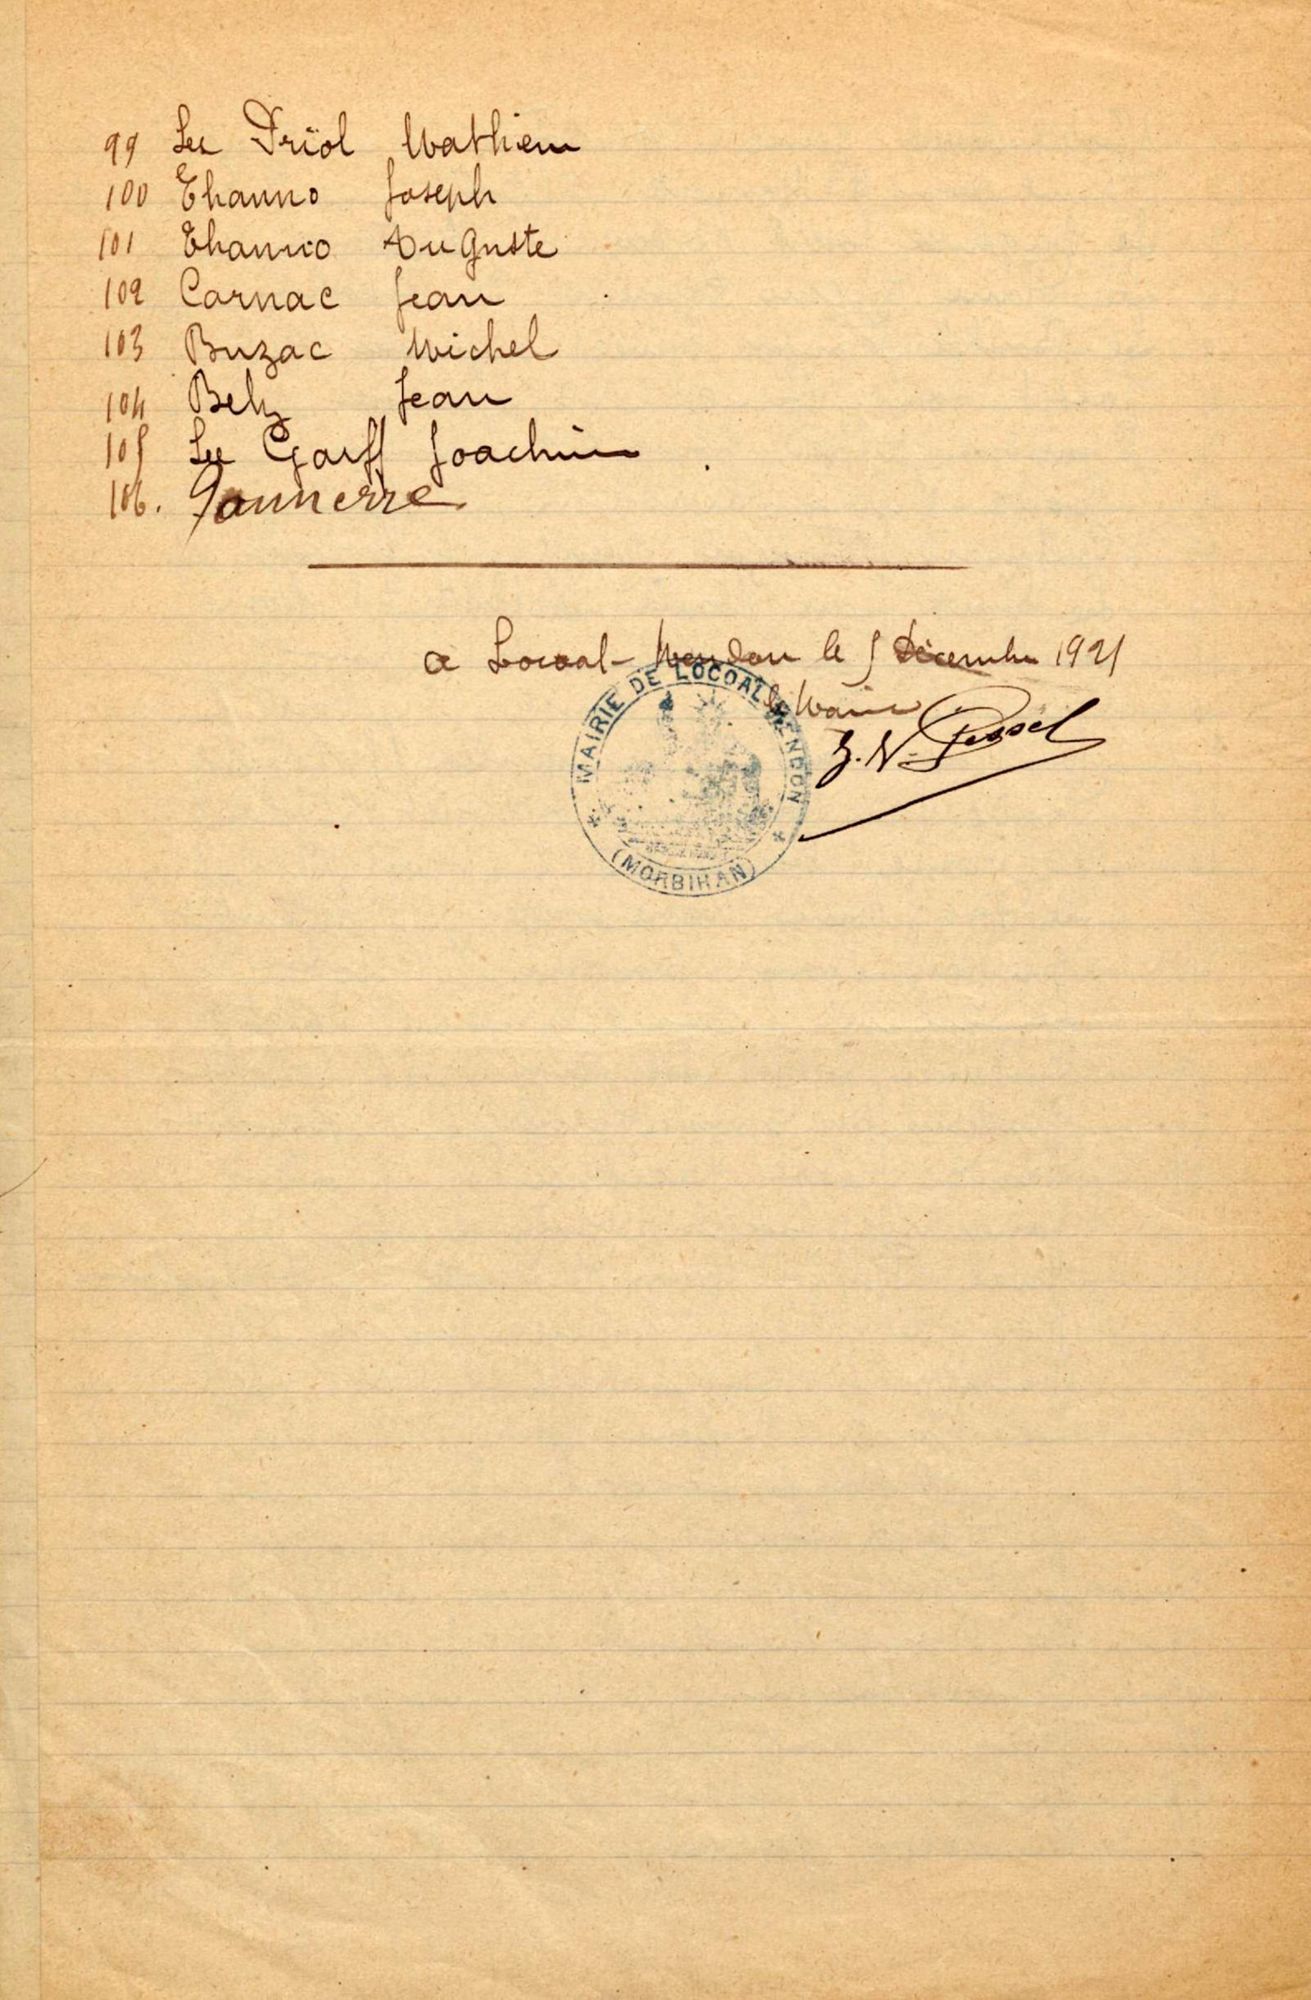 99 Le Driol Mathieu
100 Ehanno Joseph
101 Ehanno Auguste
102 Carnac Jean
103 Buzac Michel
104 Belz Jean
105 Le Garff Joachim
106.
a Locoal-Mendon le 5 Décembre 1921
le Maire
MAIRIE DE LOCOAL MENDON
(MORBIHAN)